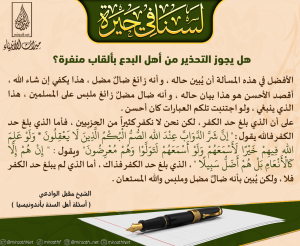 لسنا في حيرة
ميراث الأنبياء
هل يجوز التحذير من أهل البدع بألقاب منفرة؟
الأفضل في هذه المسألة أن يُبين حاله ، وأنه زائغ ضال مضل ، هذا يكفي إن شاء الله ،
أقصد الأحسن هو هذا بيان حاله ، أنه ضال مضل زائغ ملبس على المسلمين ، هذا
الذي ينبغي ، ولو اجتنبت تلكم العبارات كان أحسن .
على أن الذي بلغ حد الكفر ، لكن نحن لا نكفر كثيراً من الحزبيين ، فأما الذي بلغ حد
الكفر فالله يقول : " إِنَّ شَرَّ الدَّوَابِّ عِنْدَ اللَّهِ الصُّمُّ الْبُكْمُ الَّذِينَ لَا يَعْقِلُونَ * وَلَوْ عَلِمَ
اللَّهُ فِيهِمْ خَيْرًا لَأَسْمَعَهُمْ وَلَوْ أَسْمَعَهُمْ لَتَوَلَّوْا وَهُمْ مُعْرِضُونَ " ويقول : " إِنْ هُمْ إِلَّا
كَالْأَنْعَامِ بَلْ هُمْ أَضَلُّ سَبِيلًا " ، الذي بلغ حد الكفر فذلك ، أما الذي لم يبلغ حد الكفر
فلا ، ولكن يُبين بأنه ضال مضل وملبس والله المستعان .
الشيخ مقبل الوادعي
( أسئلة أهل السنة بأندونيسيا )